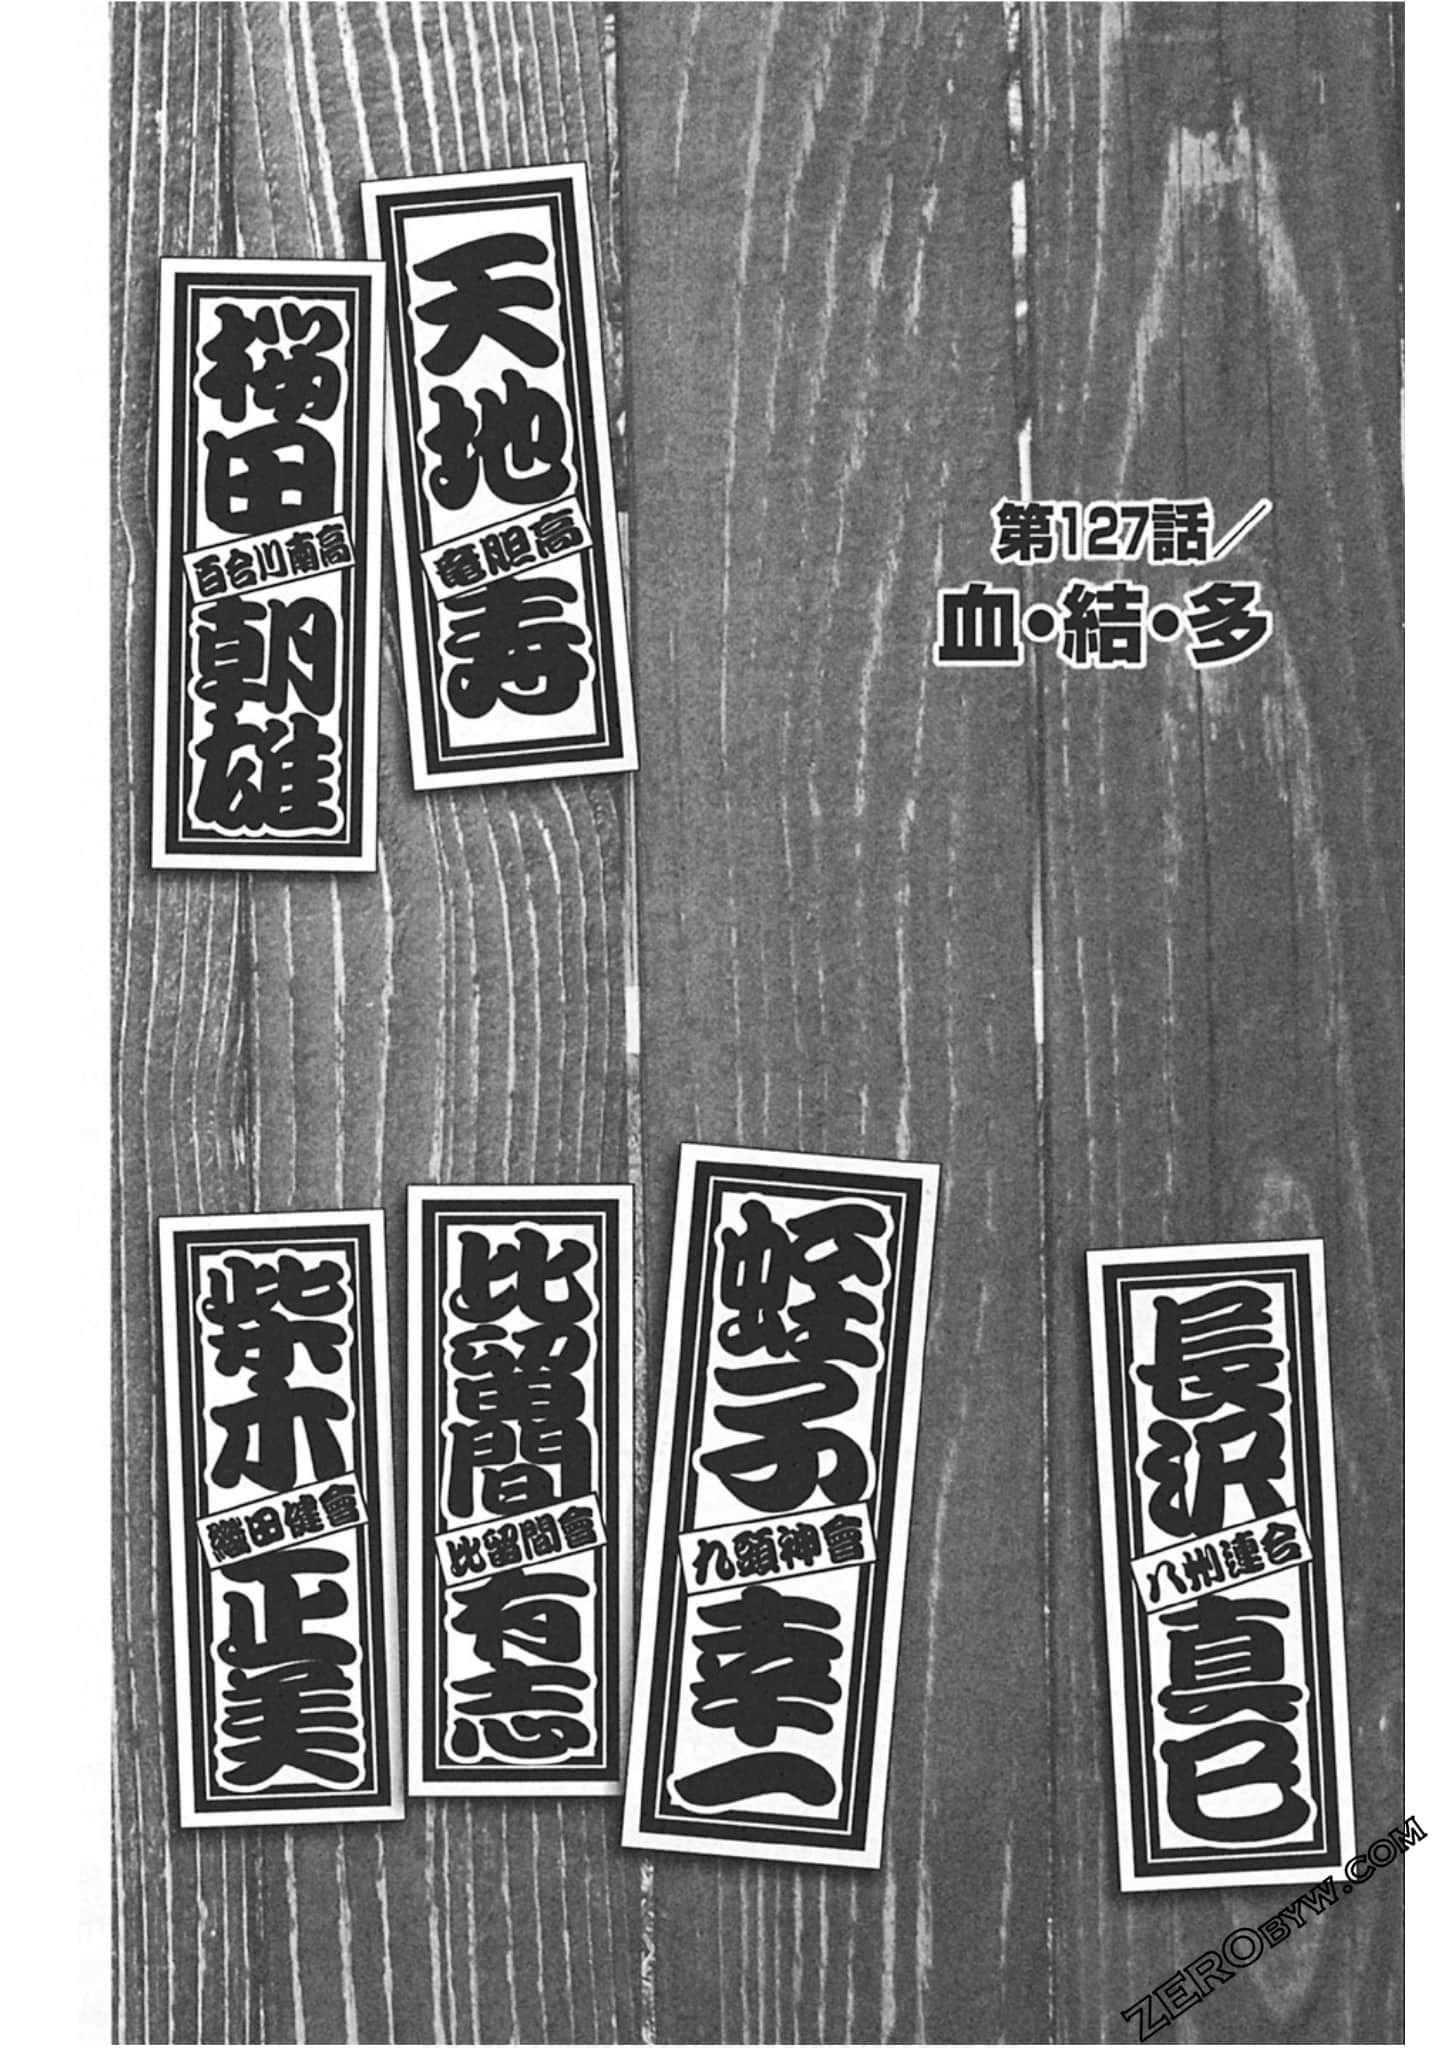 第127話／
血・結・多
天地寿
竜胆高
桜田朝雄
百合川南高
長沢真巳
八州連合
蛭子幸一
九頭神會
比留間有志
比留間會
柴木正美
織田健會
ZEROBYW.COM